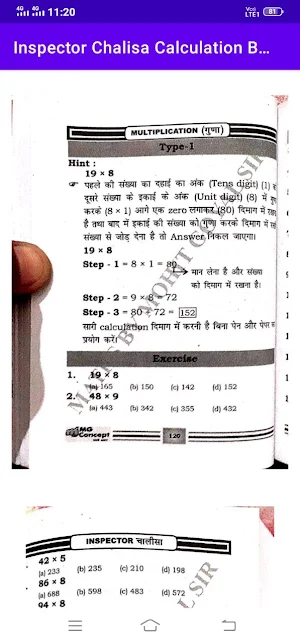 4G 4G 11:20 Vo) LTE1 81
Inspector Chalisa Calculation B...
MULTIPLICATION (गुणा)
Type-1
Hint :
19 × 8
☞ पहले की संख्या का दहाई का अंक (Tens digit) (1) क
दूसरे संख्या के इकाई के अंक (Unit digit) (8) में गु
करके (8 × 1) आगे एक zero लगाकर (80) दिमाग में
है तथा बाद में इकाई की संख्या को गुणा करके दिमाग में
संख्या से जोड़ देना है तो Answer निकल जाएगा।
19 × 8
Step - 1 = 8 × 1 = 80
मान लेना है और संख्या
को दिमाग में रखना है।
Step - 2 = 9 × 8 = 72
Step - 3 = 80 + 72 = 152
सारी calculation दिमाग में करनी है बिना पेन और पेपर
प्रयोग करें।
Exercise
1. 19 × 8
(a) 165 (b) 150 (c) 142 (d) 152
2. 48 × 9
(a) 443 (b) 342 (c) 355 (d) 432
MG Concept
120
INSPECTOR चालीसा
42 × 5
(a) 233 (b) 235 (c) 210 (d) 198
86 × 8
(a) 688 (b) 598 (c) 483 (d) 572
94 × 8